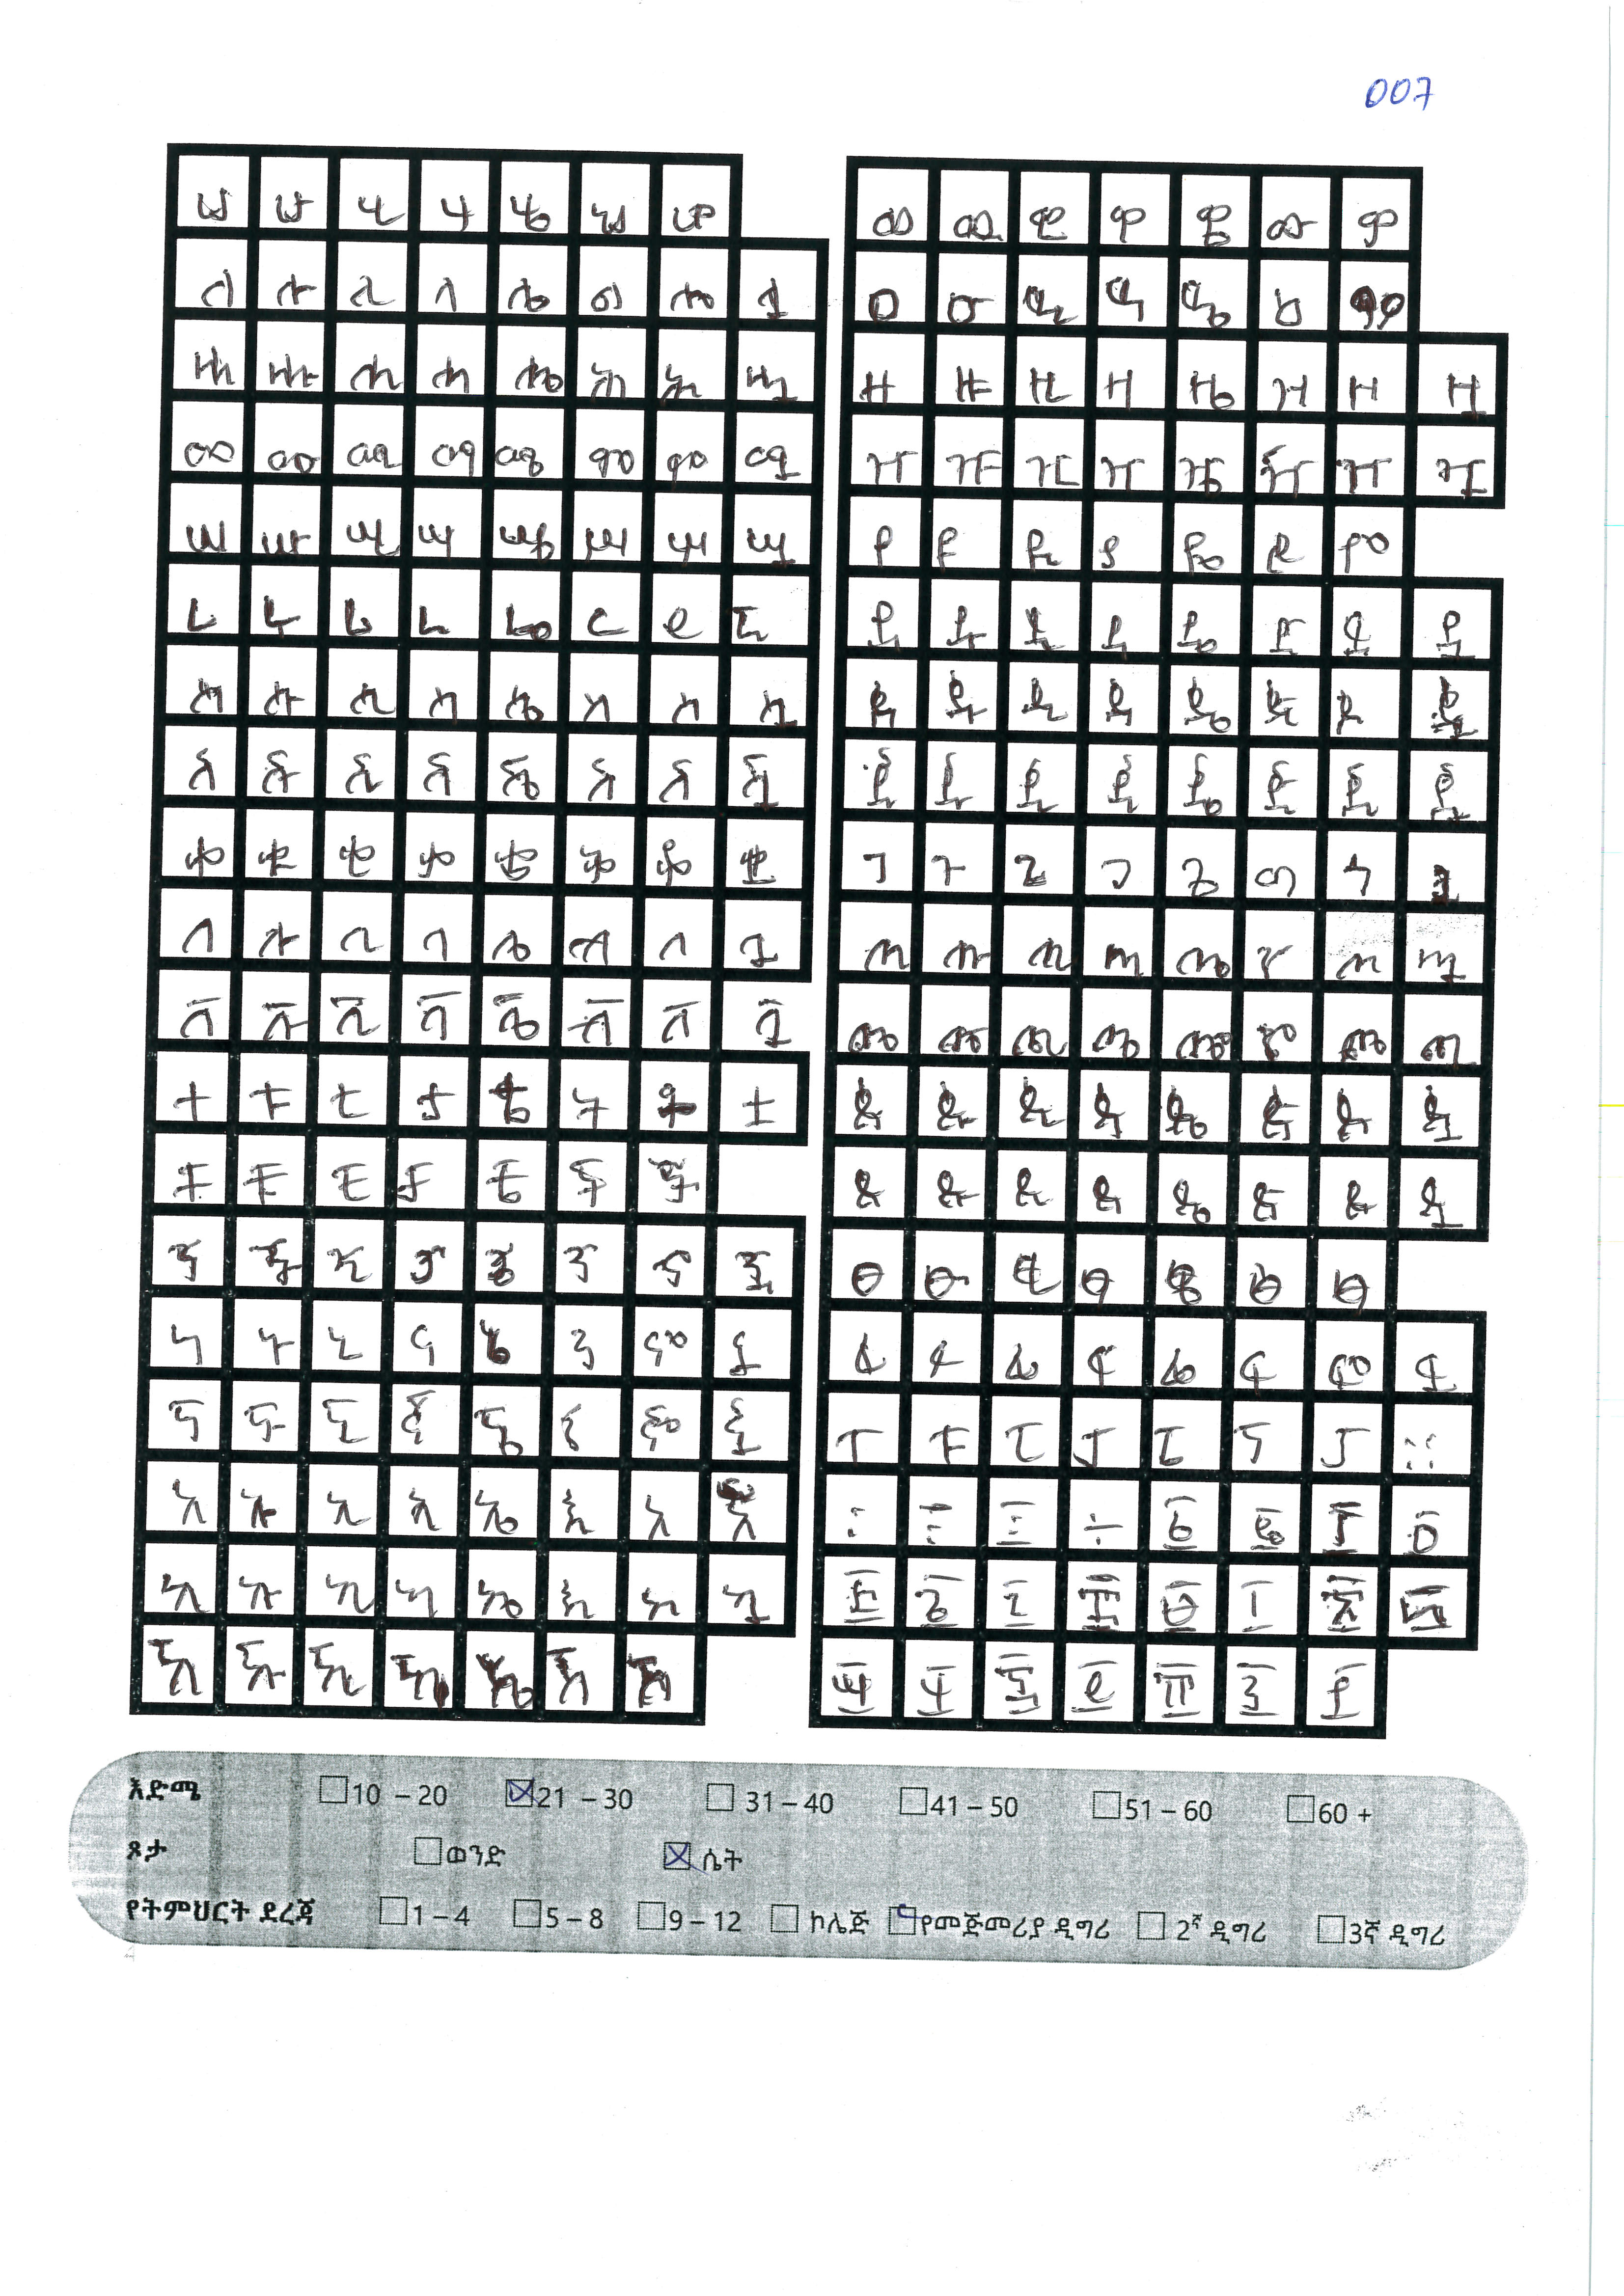 007
ሀ ሁ ሂ ሃ ሄ ህ ሆ
ለ ሉ ሊ ላ ሌ ል ሎ ሏ
ሐ ሑ ሒ ሓ ሔ ሕ ሖ ሗ
መ ሙ ሚ ማ ሜ ም ሞ ሟ
ሠ ሡ ሢ ሣ ሤ ሥ ሦ ሧ
ረ ሩ ሪ ራ ሬ ር ሮ ሯ
ሰ ሱ ሲ ሳ ሴ ስ ሶ ሷ
ሸ ሹ ሺ ሻ ሼ ሽ ሾ ሿ
ቀ ቁ ቂ ቃ ቄ ቅ ቆ ቋ
በ ቡ ቢ ባ ቤ ብ ቦ ቧ
ቨ ቩ ቪ ቫ ቬ ቭ ቮ ቯ
ተ ቱ ቲ ታ ቴ ት ቶ ቷ
ቸ ቹ ቺ ቻ ቼ ች ቾ
ኀ ኁ ኂ ኃ ኄ ኅ ኆ ኋ
ነ ኑ ኒ ና ኔ ን ኖ ኗ
ኘ ኙ ኚ ኛ ኜ ኝ ኞ ኟ
አ ኡ ኢ ኣ ኤ እ ኦ ኧ
ከ ኩ ኪ ካ ኬ ክ ኮ ኳ
ኸ ኹ ኺ ኻ ኼ ኽ ኾ
ወ ዉ ዊ ዋ ዌ ው ዎ
ዐ ዑ ዒ ዓ ዔ ዕ ዖ
ዘ ዙ ዚ ዛ ዜ ዝ ዞ ዟ
ዠ ዡ ዢ ዣ ዤ ዥ ዦ ዧ
የ ዩ ዪ ያ ዬ ይ ዮ
ደ ዱ ዲ ዳ ዴ ድ ዶ ዷ
ጀ ጁ ጂ ጃ ጄ ጅ ጆ ጇ
ገ ጉ ጊ ጋ ጌ ግ ጎ ጓ
ጠ ጡ ጢ ጣ ጤ ጥ ጦ ጧ
ጨ ጩ ጪ ጫ ጬ ጭ ጮ ጯ
ጰ ጱ ጲ ጳ ጴ ጵ ጶ ጷ
ጸ ጹ ጺ ጻ ጼ ጽ ጾ ጿ
ፀ ፁ ፂ ፃ ፄ ፅ ፆ
ፈ ፉ ፊ ፋ ፌ ፍ ፎ ፏ
ፐ ፑ ፒ ፓ ፔ ፕ ፖ ።
እድሜ 10 – 20 21 – 30 31 – 40 41 – 50 51 – 60 60 +
ጾታ ወንድ ሴት
የትምህርት ደረጃ 1 – 4 5 – 8 9 – 12 ኮሌጅ የመጅመሪያ ዲግሪ 2ኛ ዲግሪ 3ኛ ዲግሪ